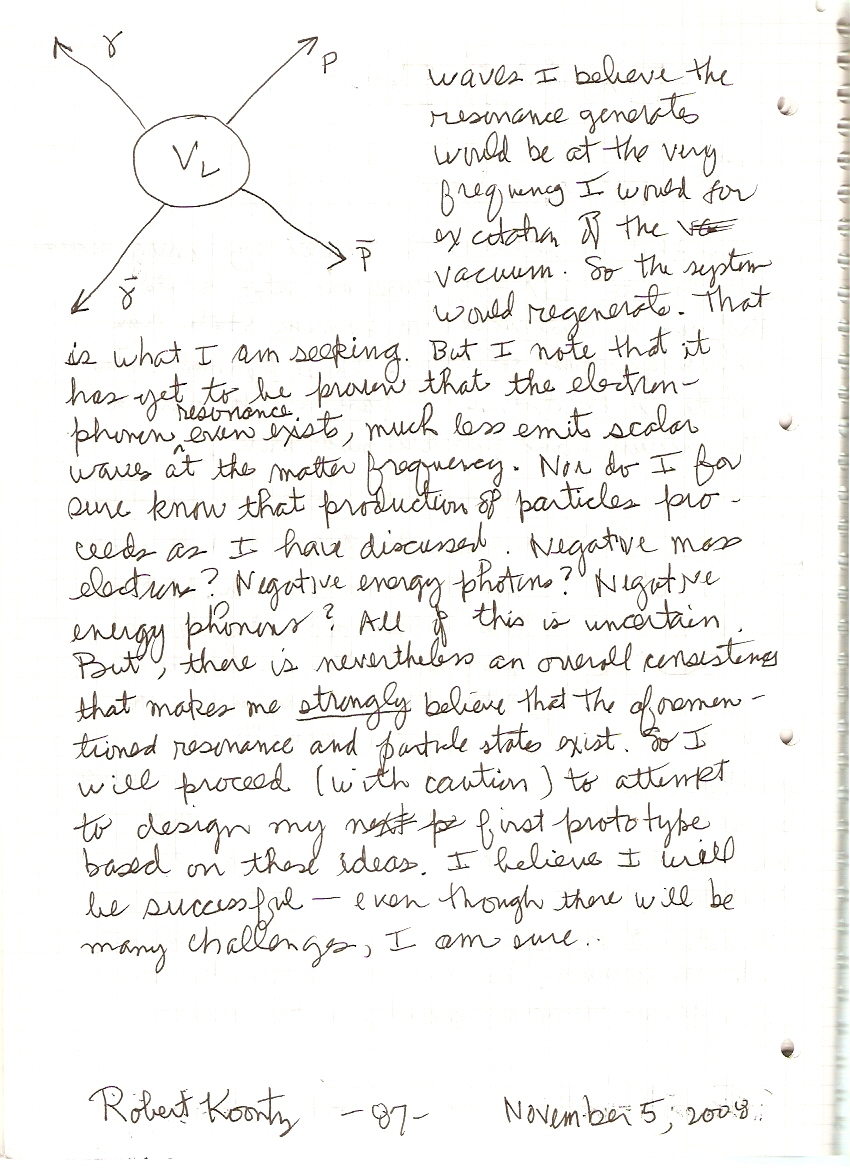 γ
P
V_L
P̄
γ̄
waves I believe the
resonance generates
would be at the very
frequency I would for
excitation of the
vacuum. So the system
would regenerate. That
is what I am seeking. But I note that it
has yet to be proven that the electron-
phonon resonance even exists, much less emit scalar
waves at the matter frequency. Nor do I for
sure know that production of particles pro-
ceeds as I have discussed. Negative mass
electrons? Negative energy photons? Negative
energy phonons? All of this is uncertain.
But, there is nevertheless an overall consistency
that makes me strongly believe that the aforemen-
tioned resonance and particle states exist. So I
will proceed (with caution) to attempt
to design my next first prototype
based on these ideas. I believe I will
be successful — even though there will be
many challenges, I am sure..
Robert Koontz -87- November 5, 2008